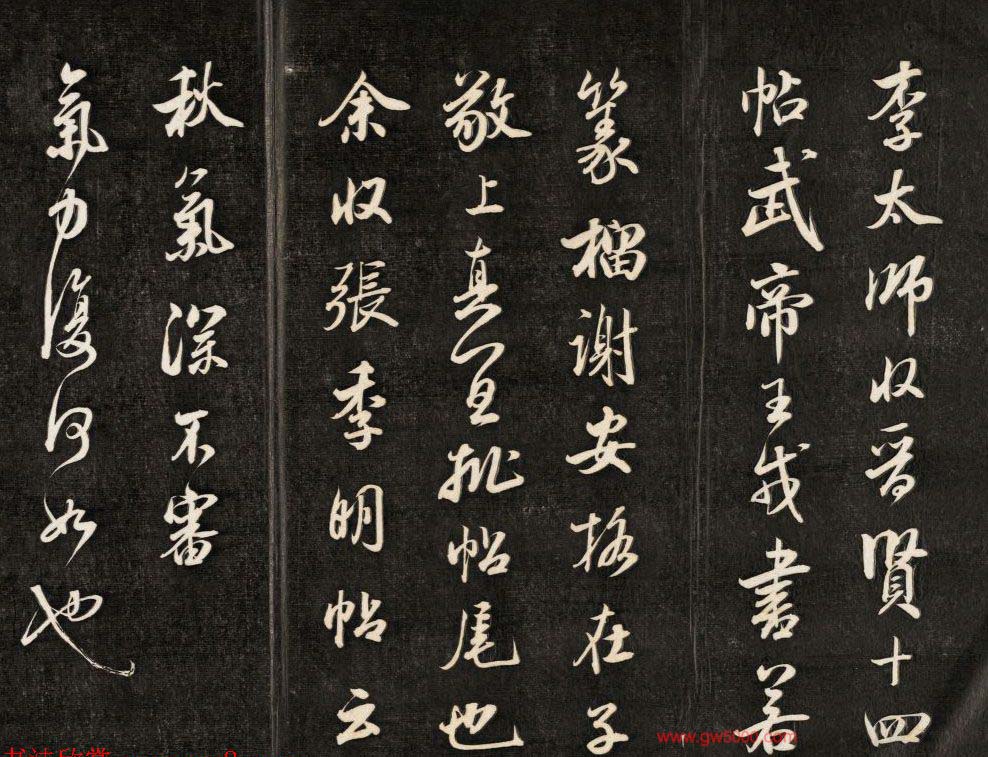 李太師收晉賢十四
帖武帝王戎書若
篆籀謝安格在子
敬上真宜批帖尾也
余收張季明帖云
秋氣深不審
氣力復何如也
www.gw5000.com